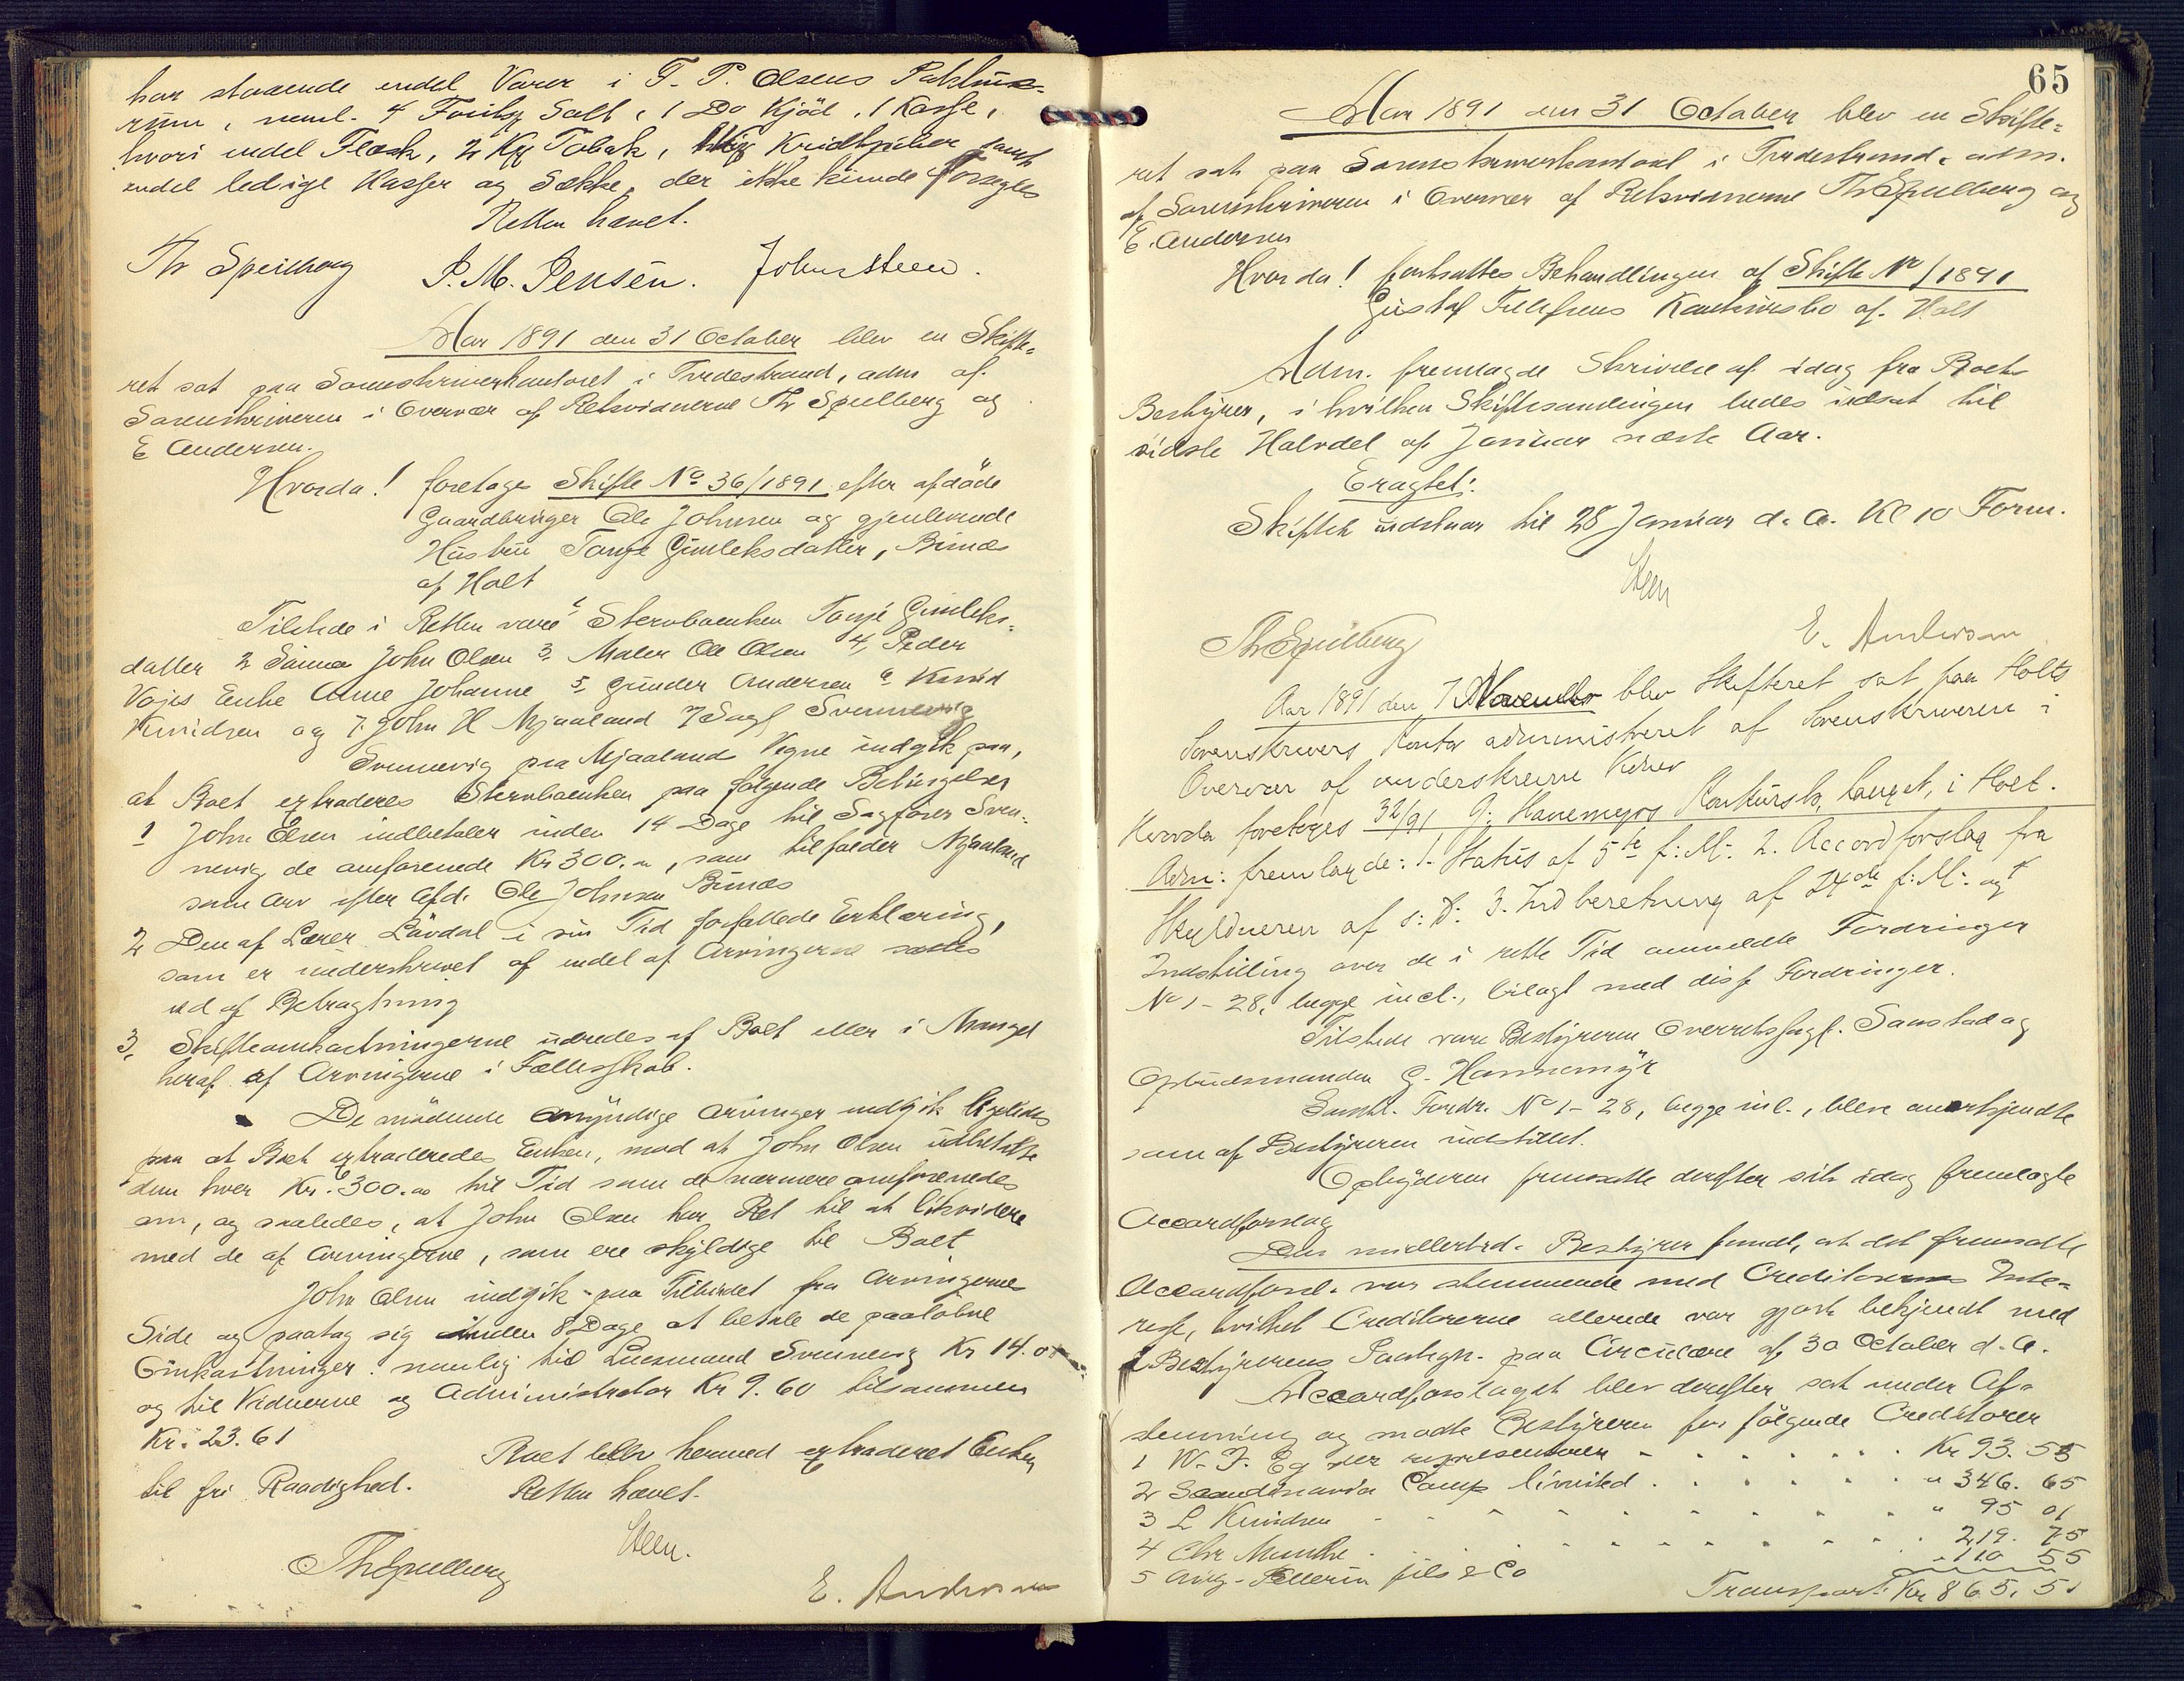 har staaende endel Varer i T. P. Olsens Pakhus-
rum, neml. 4 Salt, 1 Do Kjöd, 1 Kasse,
hvori endel Flesk, 2 Kg Tobak, Kridtpiber samt
endel ledige Kasser og Sække, der ikke kunde forsegles
Retten hævet.
Th Speilberg P. M. Jensen. John Steen.
Aar 1891 den 31 October blev en Skifte-
ret sat paa Sorenskriverkontoret i Tvedestrand, adm af
Sorenskriveren i Overvær af Retsvidnerne Th Speilberg og
E Andersen.
Hvorda! foretoges Skifte No 36/1891 efter afdöde
Gaardbruger Ole Johnsen og gjenlevende
Hustru Tonje Gunleksdatter, Bunæs
af Holt
Tilstede i Retten vare 1 Stervboenken Tonje Gunleks-
datter 2 Sönnen John Olsen 3, Maler Ole Olsen 4, Peder
Enke Anne Johanne 5, Gunder Andersen 6 Knud
Knudsen og 7. John H Mjaaland 7 Sagf Svennevig
Svennevig paa Mjaalands Vegne indgik paa,
at Boet extraderes Stervboenken paa følgende Betingelser
1 John Olsen indbetaler inden 14 Dage til Sagfører Sven-
nevig de omforenede Kr 300.00, som tilfalder Mjaaland
som Arv efter Afd. Ole Johnsen Bunæs
2 Den af Lærer Lövdal i sin Tid forfattede Erklæring,
som er underskrevet af endel af Arvingerne sættes
ud af Betragtning
3, Skifteomkostningerne udredes af Boet eller i Mangel
heraf af Arvingerne i Fællesskab.
De mödende myndige Arvinger indgik ligeledes
paa at Boet extraderedes Enken, mod at John Olsen udbetalte
dem hver Kr. 300.00 til Tid som de nærmere omforenedes
om, og saaledes, at John Olsen har Ret til at likvidere
med de af Arvingerne, som ere skyldige til Boet
John Olsen indgik paa Tilbudet fra Arvingernes
Side og paatog sig inden 8 Dage at betale de paaløbne
Omkostninger: nemlig til Lensmand Svennevig Kr 14.01
og til Vidnerne og Administrator Kr 9.60 tilsammen
Kr. 23.61
Boet blev hermed extraderet Enken
til fri Raadighed.
Retten hævet.
Steen.
Th Speilberg
E. Andersen
65
Aar 1891 den 31 October blev en Skifte-
ret sat paa Sorenskriverkontoret i Tvedestrand, adm.
af Sorenskriveren i Overvær af Retsvidnerne Th Speilberg og
E. Andersen
Hvorda! fortsattes Behandlingen af Skifte No /1891
Gustaf Tellefsens Konkursbo af Holt
Adm. fremlagde Skrivelse af idag fra Boets
Bestyrer, i hvilken Skiftesamlingen bedes udsat til
sidste Halvdel af Januar næste Aar.
Eragtet:
Skiftet udstaar til 28 Januar d. A. Kl 10 Form.
Steen
Th Speilberg
E. Andersen
Aar 1891 den 7 November blev Skifteret sat paa Holts
Sorenskrivers Kontor administreret af Sorenskriveren i
Overvær af underskrevne Vidner
Hvorda foretoges 32/91 G. Hannemyrs Konkursbo, i Holt.
Adm: fremlagde: 1. Status af 5te f: M: 2. Accordforslag fra
Skyldneren af s: D: 3. Indberetning af 24de f: M: og
Indstilling over de i rette Tid anmeldte Fordringer
No 1-28, begge incl., bilagt med disse Fordringer.
Tilstede vare Bestyreren Overretssagf. Sanstad og
Opbudsmanden G. Hannemyr
Samtl. Fordr. No 1-28, begge incl., bleve anerkjendte
som af Bestyreren indstillet.
Opbyderen fremsatte derefter sit idag fremlagte
Accordforslag
Den midlertid. Bestyrer fandt, at det fremsatte
Accordforsl. var stemmende med Creditorernes Inte-
resse, hvilket Creditorerne allerede var gjort bekjendt med
i Bestyrerens Paategn. paa Circulære af 30 October d. A.
Accordforslaget blev derefter sat under Af-
stemning og mødte Bestyreren for følgende Creditorer
1 W. F. Kr 93. 55
2 Scandinavia Comp limited " 346. 65
3 L Knudsen " 95 01
4 Chr Munthe 219. 75
5 Aug. Pellerin fils & Co 110 55
Transport: Kr 865, 51